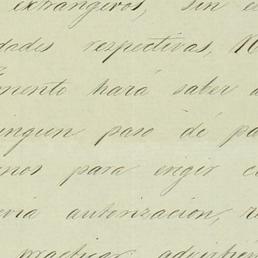 extrangeros, sin e
dades respectivas, N
mento hará saber a
ingun paso dé pa
nos para erigir c
evia autorizacion, r
practicar advirtien